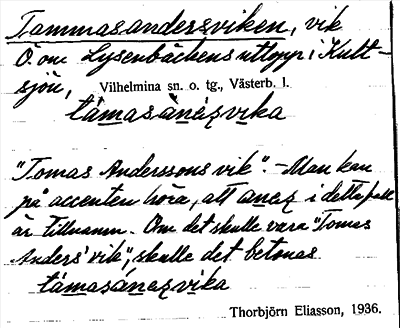 Tammasandersviken, vik
Ö. om Lysenbäckens utlopp i Kult-
sjön, Vilhelmina sn. o. tg., Västerb. l.
támasànazvika
"Tomas Anderssons vik". – Man kan
på accenten höra, att anaz i detta fall
är tillnamn. Om det skulle vara "Tomas
Anders' vik", skulle det betonas
tàmasánazvika
Thorbjörn Eliasson, 1936.